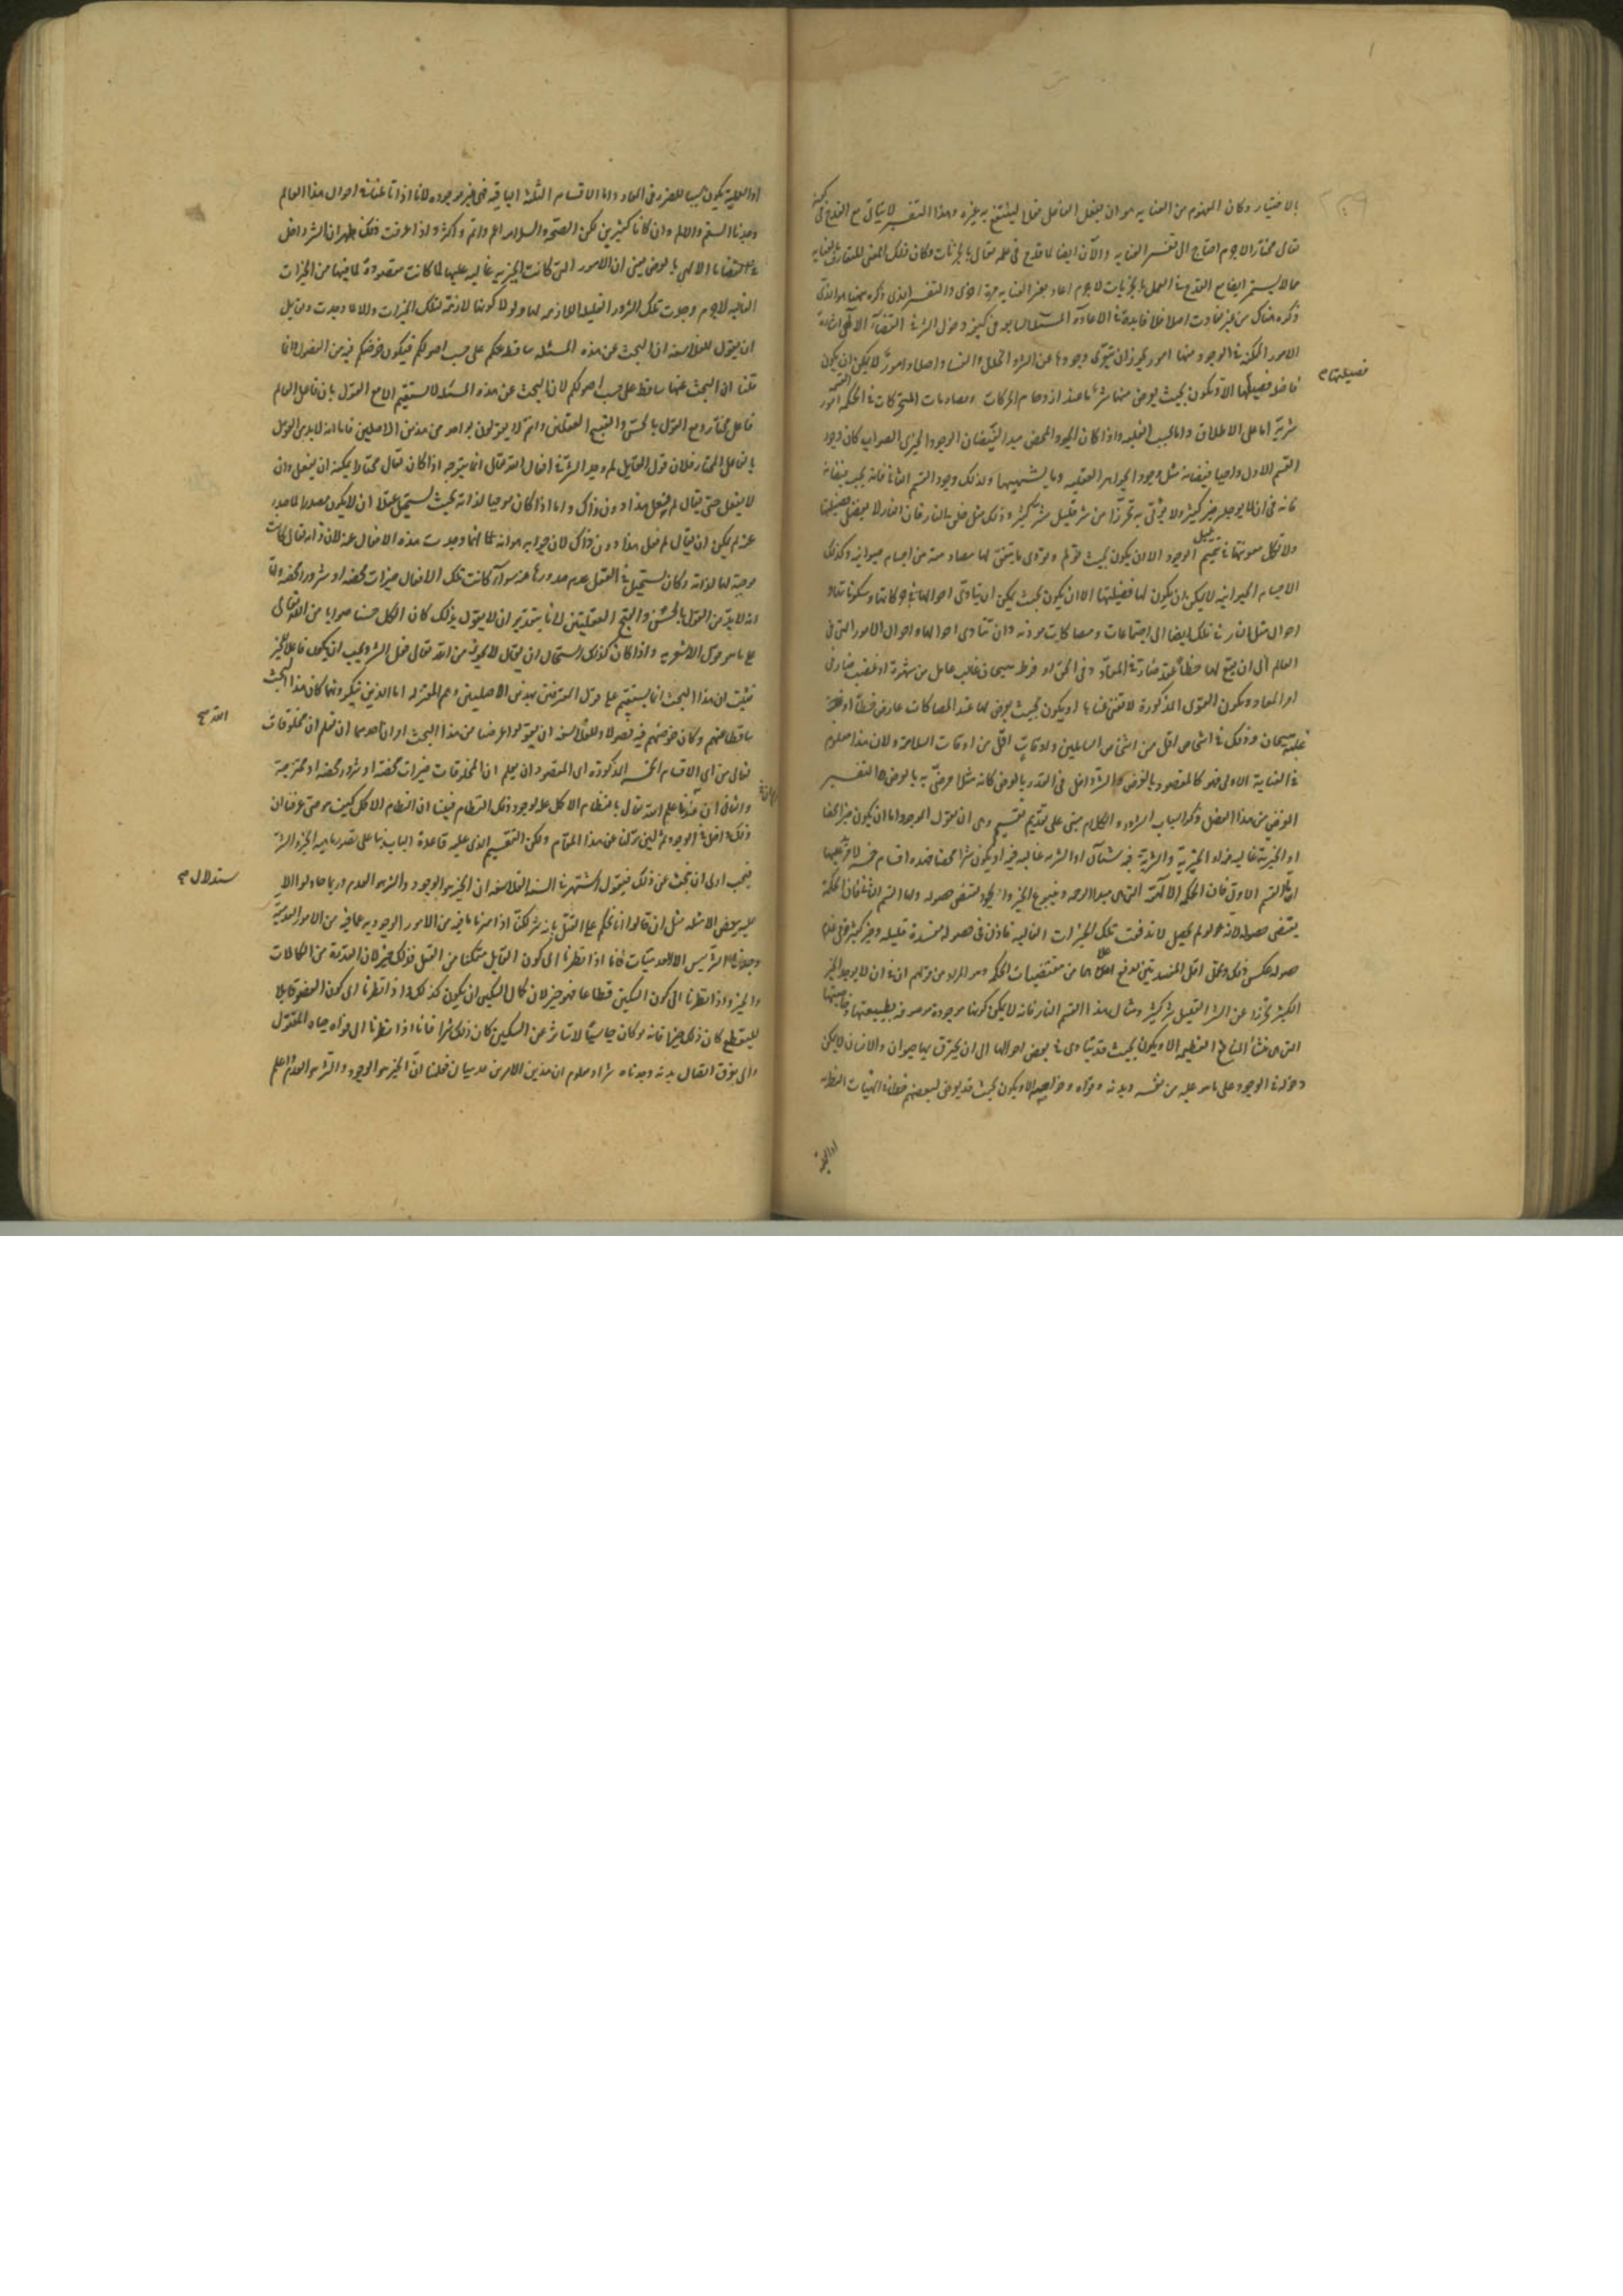 بالاختيار وكان المفهوم من العناية هو ان يفعل الفاعل فعلا لينتفع به غيره وهذا التفسير لا يتأتى مع القدح في كونه
تعالى مختارا لاجرم احتاج الى تفسير العناية والآن ايضا لما قدح في علمه تعالى بالجزئيات وكان ذلك المعنى المتعارف للعناية
مما لا يستمر ايضا مع القدح في العلم بالجزئيات لاجرم اعاد تفسير العناية مرة اخرى والتفسير الذى ذكره ههنا هو الذى
ذكره هناك من غير تفاوت اصلا فلا فائدة في الاعادة المسئلة السابعة في كيفية دخول الشر في القضآء الالهى اشارة
الامور الممكنة في الوجود منها امور يجوز ان يتعرى وجودها عن الشر والخلل والفساد اصلا وامور لا يمكن ان يكون
فاضلة فضيلتها الا وتكون بحيث يعرض منها شر ما عند ازدحام الحركات ومصادمات المتحركات وفي القسمة امور
شرية اما على الاطلاق واما بحسب الغلبة واذا كان الجود المحض مبدأ لفيضان الوجود الخيرى الصواب كان وجود
القسم الاول واجبا فيضانه مثل وجود الجواهر العقلية وما يشبهها وكذلك وجود القسم الثاني فانه يجب فيضانه
فانه في ان لا يوجد خير كثير ولا يؤتى به تحرزا من شر قليل شر كثير وذلك مثل خلق النار فان النار لا يفضل فضيلتها
ولا تكمل معونتها في تتميم الوجود الا ان يكون بحيث تؤلم وتؤذى ما يتفق لها مصادمته من اجسام حيوانية وكذلك
الاجسام الحيوانية لا يمكن ان يكون لها فضيلتها الا ان يكون بحيث يمكن ان يتأدى احوالها في حركاتها وسكوناتها و
احوال مثل النار في تلك ايضا الى اجتماعات ومصاكات موذية وان تتأدى احوالها واحوال الامور التى في
العالم الى ان يقع لها خطأ عقد ضار في المعاد وفي الحق او فرط هيجان غالب عامل من شهوة او غضب ضار في
امر المعاد وتكون القوى المذكورة لا تغنى غناها او يكون بحيث يعرض لها عند المصاكات عارض خطأ او
غلبة هيجان وذلك في اشخاص اقل من اشخاص السالمين واوقات اقل من اوقات السلامة ولان هذا معلوم
في العناية الاولى فهو كالمقصود بالعرض فالشر داخل في القدر بالعرض كانه مثلا مرضى به بالعرض التفسير
الغرض من هذا الفصل ذكر اسباب الشرور والكلام مبنى على تقديم تقسيم وهى ان نقول الموجود اما ان يكون خيرا محضا
او الخيرية غالبة فيه او الخيرية والشرية فيه سيّان او الشرية غالبة فيه او يكون شرا محضا فهذه اقسام خمسة لا مزيد عليها
اما القسم الاول فان الحكمة الالهية التى هى مبدأ الرحمة وينبوع الخير والجود تقتضى حصوله واما القسم الثاني فان الحكمة
يقتضى حصوله لانه لو لم يحصل لاندفعت تلك الخيرات الغالبة فاذن في حصوله مفسدة قليلة وخير كثير وفي عدم
حصوله عكس ذلك وتحمل اقل المفسدتين لدفع اعلاهما من مقتضيات الحكمة وهو المراد من قولهم ان في ان لا يوجد الخير
الكثير تحرزا عن الشر القليل شر كثير ومثال هذا القسم النار فانه لا يمكن كونها موجودة موصوفة بطبيعتها وخاصيتها
التى هى منشأ المنافع العظيمة الا ويكون بحيث قد يتأدى في بعض احوالها الى ان يحترق بها حيوان والانسان لا يمكن
دخوله في الوجود على ما هو عليه من نفسه وبدنه وقواه وخواصه الا ويكون بحيث قد يعرض لبعضهم خطأ في الهيئات النظرية
او العملية
فضيلتها
او العملية يكون سببا للضرر في المعاد واما الاقسام الثلثة الباقية فهى غير موجودة لانا اذا تأملنا في احوال هذا العالم
وجدنا السقم والالم وان كانا كثيرين لكن الصحة والسلامة اعم واتم واكثر واذا عرفت ذلك ظهر ان الشر داخل
في القضاء الالهى بالعرض بمعنى ان الامور التى كانت الخيرية غالبة عليها لما كانت مقصودة لما فيها من الخيرات
الغالبة لاجرم وجدت تلك الشرور القليلة اللازمة لها ولو لا كونها لازمة لتلك الخيرات والا لما وجدت ولقايل
ان يقول للفلاسفة ان البحث عن هذه المسئلة ساقط عنكم على حسب اصولكم فيكون خوضكم فيه من الفضول وانما
قلنا ان البحث عنها ساقط على حسب اصولكم لان البحث عن هذه المسئلة لا يستقيم الا مع القول بان فاعل العالم
فاعل مختار ومع القول بالحسن والقبح العقليين وانتم لا تقولون بواحد من هذين الاصلين فاما انه لا بد من القول
بالفاعل المختار فلان قول القايل لم وجد الشر في افعال الله تعالى انما يتوجه اذا كان تعالى مختارا يمكنه ان يفعل وان
لا يفعل حتى يقال لم فعل هذا دون ذاك واما اذا كان موجبا لذاته بحيث يستحيل عقلا ان لا يكون مصدرا لما صدر
عنه لم يكن ان يقال لم فعل هذا دون ذاك لان جوابه هو انه انما وجدت هذه الافعال عنه لان ذاته تعالى كانت
موجبة لها لذاته وكان يستحيل في العقل عدم صدورها عنه سواء كانت تلك الافعال خيرات محضة او شرور محضة واما
انه لا بد من القول بالحسن والقبح العقليين لانا بتقدير ان لا يقول بذلك كان الكل حسنا صوابا من الله تعالى
على ما هو قول الاشعرية واذا كان كذلك استحال ان يقال لا يجوز من الله تعالى فعل الشر ويجب ان يكون فاعلا للخير
فثبت ان هذا البحث انما يستقيم على قول المعترفين بهذين الاصلين وهم المعتزلة اما الذين ينكرونهما كان هذا البحث
ساقطا عنهم وكان خوضهم فيه فضولا وللفلاسفة ان يقولوا غرضنا من هذا البحث امران احدهما ان نعلم ان مخلوقات
تعالى من اى الاقسام الخمسة المذكورة اى المقصود ان يعلم ان المخلوقات خيرات محضة او شرور محضة او ممتزجة
والثاني ان عندنا علم الله تعالى بالنظام الاكمل علة لوجود ذلك النظام فبينا ان النظام الاكمل كيف هو حتى عرفنا ان
ذلك داخل في الوجود فلئن نزلنا عن هذا المقام ولكن التقسيم الذى عليه قاعدة الباب بناء على تصور ماهية الخير والشر
فيجب اولا ان نبحث عن ذلك فنقول اشتهر في السنة الفلاسفة ان الخير هو الوجود والشر هو العدم وربما حاولوا الا
عليه ببعض الامثلة مثل ان قالوا انا نحكم على القتل بانه شر لكنا اذا ميزنا ما فيه من الامور الوجودية عما فيه من الامور العدمية
وجدنا الشر ليس الا العدميات فانا اذا نظرنا الى كون القايل متمكنا من القتل فذلك خير لان القدرة من الكمالات
والخير واذا نظرنا الى كون السكين قطاعا فهو خير لان كمال السكين ان يكون كذلك واذا نظرنا الى كون العضو قابلا
للقطع كان ذلك خيرا فانه لو كان جاسيا لا يتأثر عن السكين كان ذلك شرا فانا اذا نظرنا الى فوات حياة المقتول
والى تفرق اتصال بدنه وجدناه شرا ومعلوم ان هذين الامرين عدميان فعلمنا ان الخير هو الوجود والشر هو العدم واعلم
الله
ستدلال